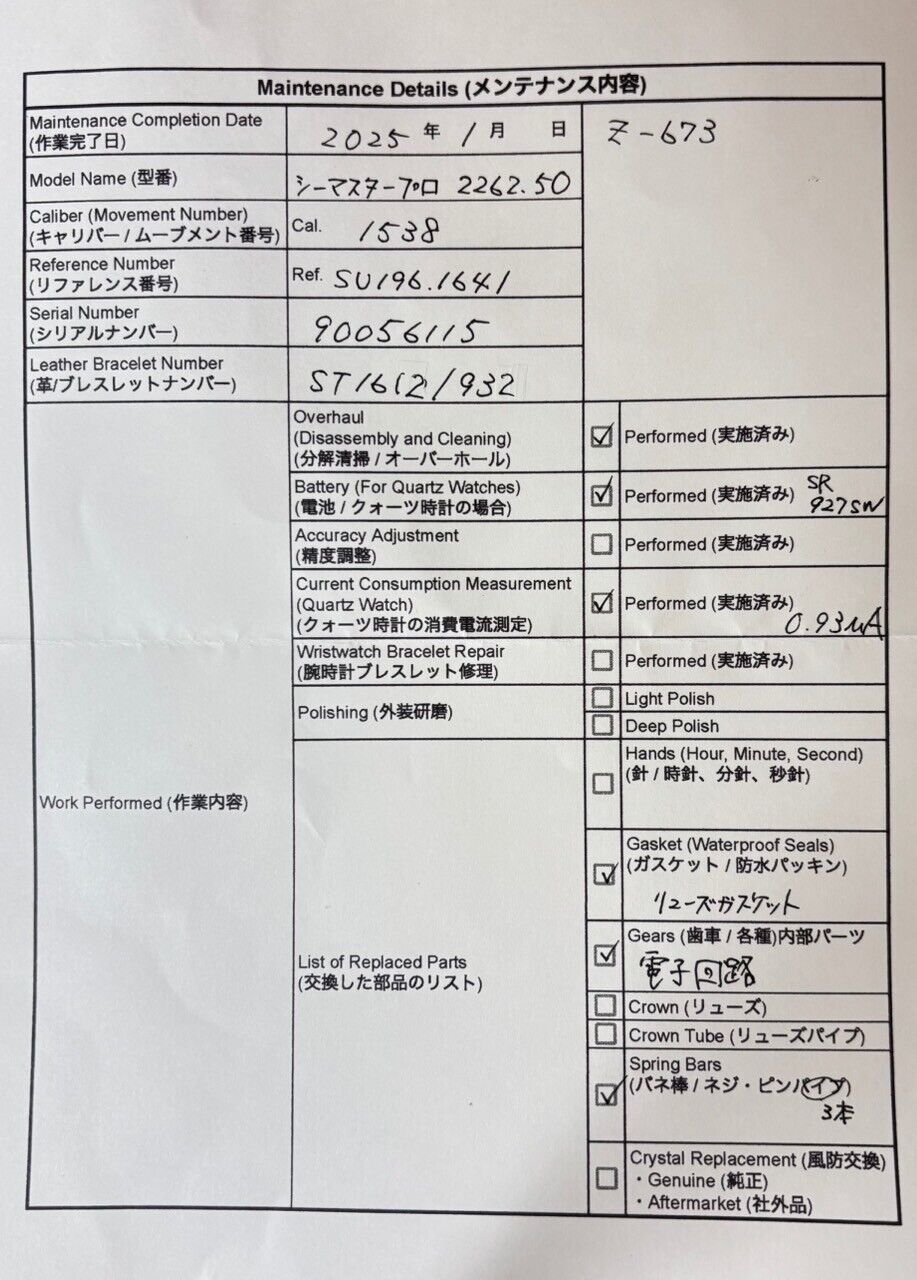 Maintenance Details (メンテナンス内容)
Maintenance Completion Date
(作業完了日)
2025 年 1 月 日
Z-673
Model Name (型番)
シーマスタープロ 2262.50
Caliber (Movement Number)
(キャリバー / ムーブメント番号)
Cal. 1538
Reference Number
(リファレンス番号)
Ref. SU196.1641
Serial Number
(シリアルナンバー)
90056115
Leather Bracelet Number
(革/ブレスレットナンバー)
ST1612/932
Work Performed (作業内容)
Overhaul
(Disassembly and Cleaning)
(分解清掃 / オーバーホール)
Performed (実施済み)
Battery (For Quartz Watches)
(電池 / クォーツ時計の場合)
Performed (実施済み) SR
927SW
Accuracy Adjustment
(精度調整)
Performed (実施済み)
Current Consumption Measurement
(Quartz Watch)
(クォーツ時計の消費電流測定)
Performed (実施済み)
0.93μA
Wristwatch Bracelet Repair
(腕時計ブレスレット修理)
Performed (実施済み)
Polishing (外装研磨)
Light Polish
Deep Polish
List of Replaced Parts
(交換した部品のリスト)
Hands (Hour, Minute, Second)
(針 / 時針、分針、秒針)
Gasket (Waterproof Seals)
(ガスケット / 防水パッキン)
リューズガスケット
Gears (歯車 / 各種)内部パーツ
電子回路
Crown (リューズ)
Crown Tube (リューズパイプ)
Spring Bars
(バネ棒 / ネジ・ピンパイプ)
3本
Crystal Replacement (風防交換)
・Genuine (純正)
・Aftermarket (社外品)